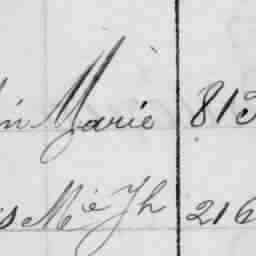 in Marie 813
s Mie Jh 216